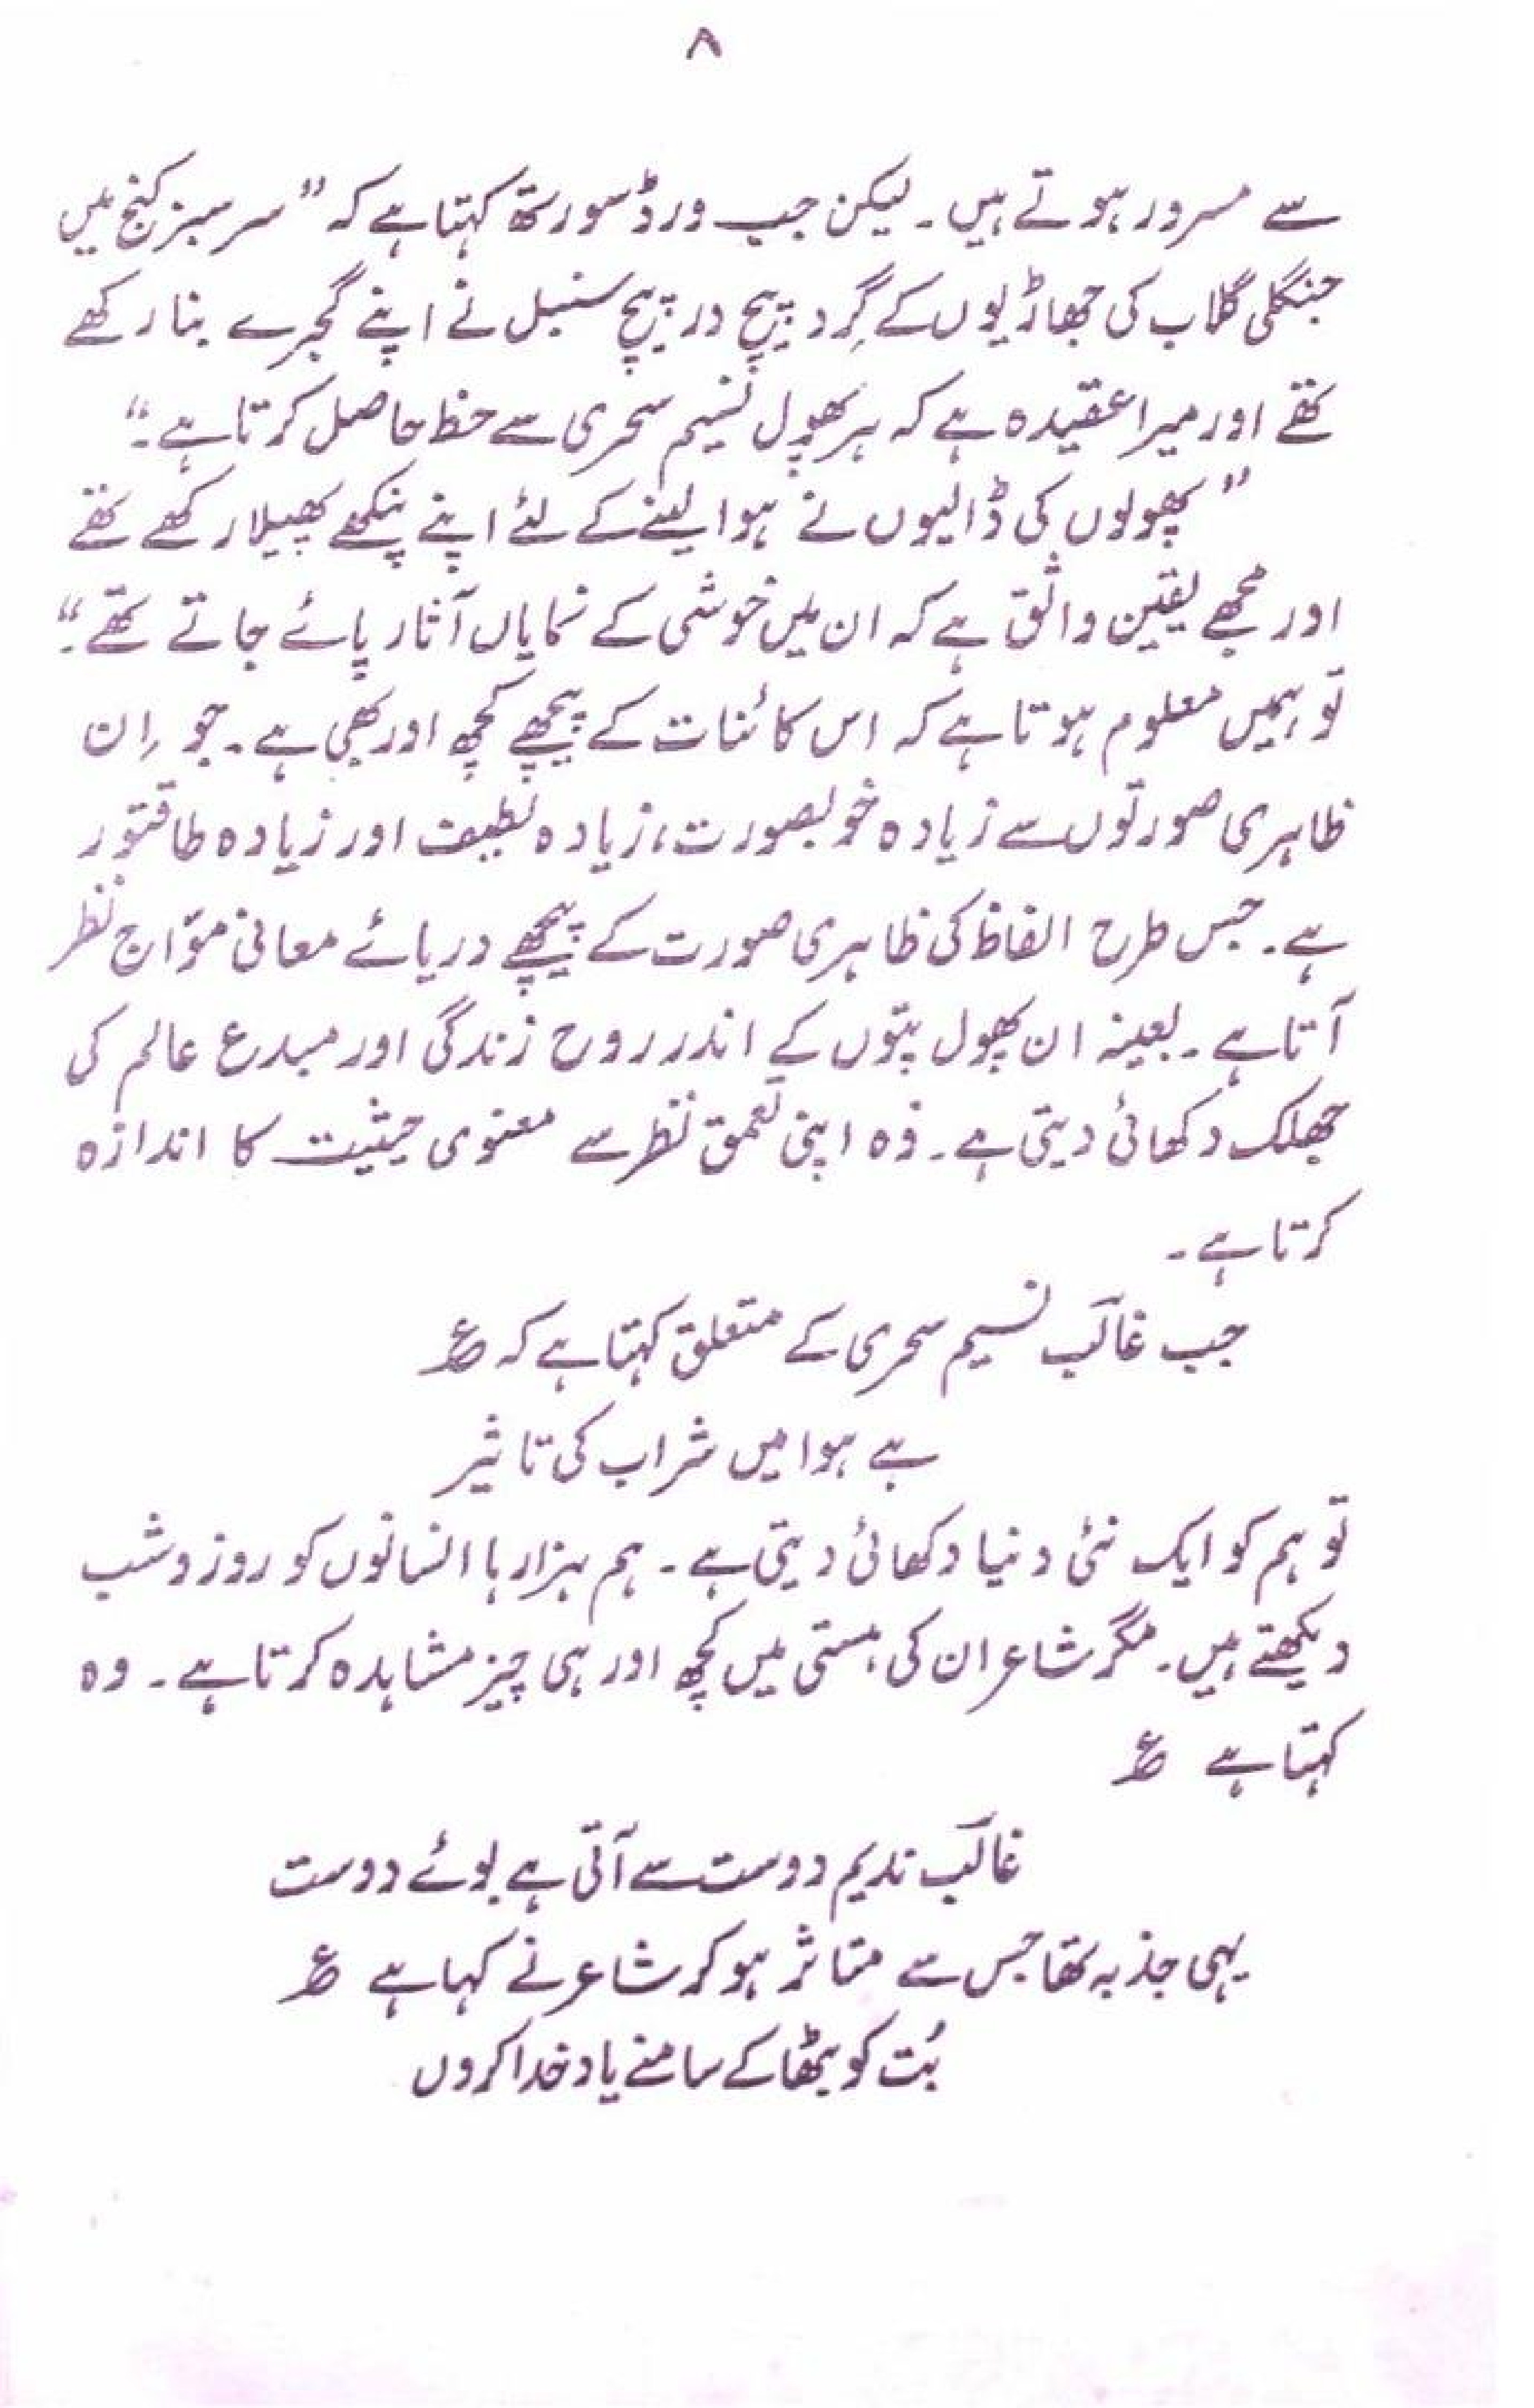 ۸
سے مسرور ہوتے ہیں۔ لیکن جب ورڈسورتھ کہتا ہے کہ "سرسبز کنج میں
جنگلی گلاب کی جھاڑیوں کے گِرد پیچ در پیچ سنبل نے اپنے گجرے بنا رکھے
تھے اور میرا عقیدہ ہے کہ ہر پھول نسیم سحری سے حظ حاصل کرتا ہے۔"
"پھولوں کی ڈالیوں نے ہوا لینے کے لئے اپنے پنکھے پھیلا رکھے تھے
اور مجھے یقین واثق ہے کہ ان میں خوشی کے نمایاں آثار پائے جاتے تھے۔"
تو ہمیں معلوم ہوتا ہے کہ اس کائنات کے پیچھے کچھ اور بھی ہے۔ جو اِن
ظاہری صورتوں سے زیادہ خوبصورت، زیادہ لطیف اور زیادہ طاقتور
ہے۔ جس طرح الفاظ کی ظاہری صورت کے پیچھے دریائے معانی موّاج نظر
آتا ہے۔ بعینہٖ ان پھول پتّوں کے اندر روح زندگی اور مبدع عالم کی
جھلک دکھائی دیتی ہے۔ وہ اپنی تعمق نظر سے معنوی حیثیت کا اندازہ
کرتا ہے۔
جب غالب نسیم سحری کے متعلق کہتا ہے کہ ع
ہے ہوا میں شراب کی تاثیر
تو ہم کو ایک نئی دنیا دکھائی دیتی ہے۔ ہم ہزارہا انسانوں کو روز و شب
دیکھتے ہیں۔ مگر شاعر ان کی ہستی میں کچھ اور ہی چیز مشاہدہ کرتا ہے۔ وہ
کہتا ہے ع
غالب ندیم دوست سے آتی ہے بوئے دوست
یہی جذبہ تھا جس سے متاثر ہو کر شاعر نے کہا ہے ع
بُت کو بٹھا کے سامنے یاد خدا کروں